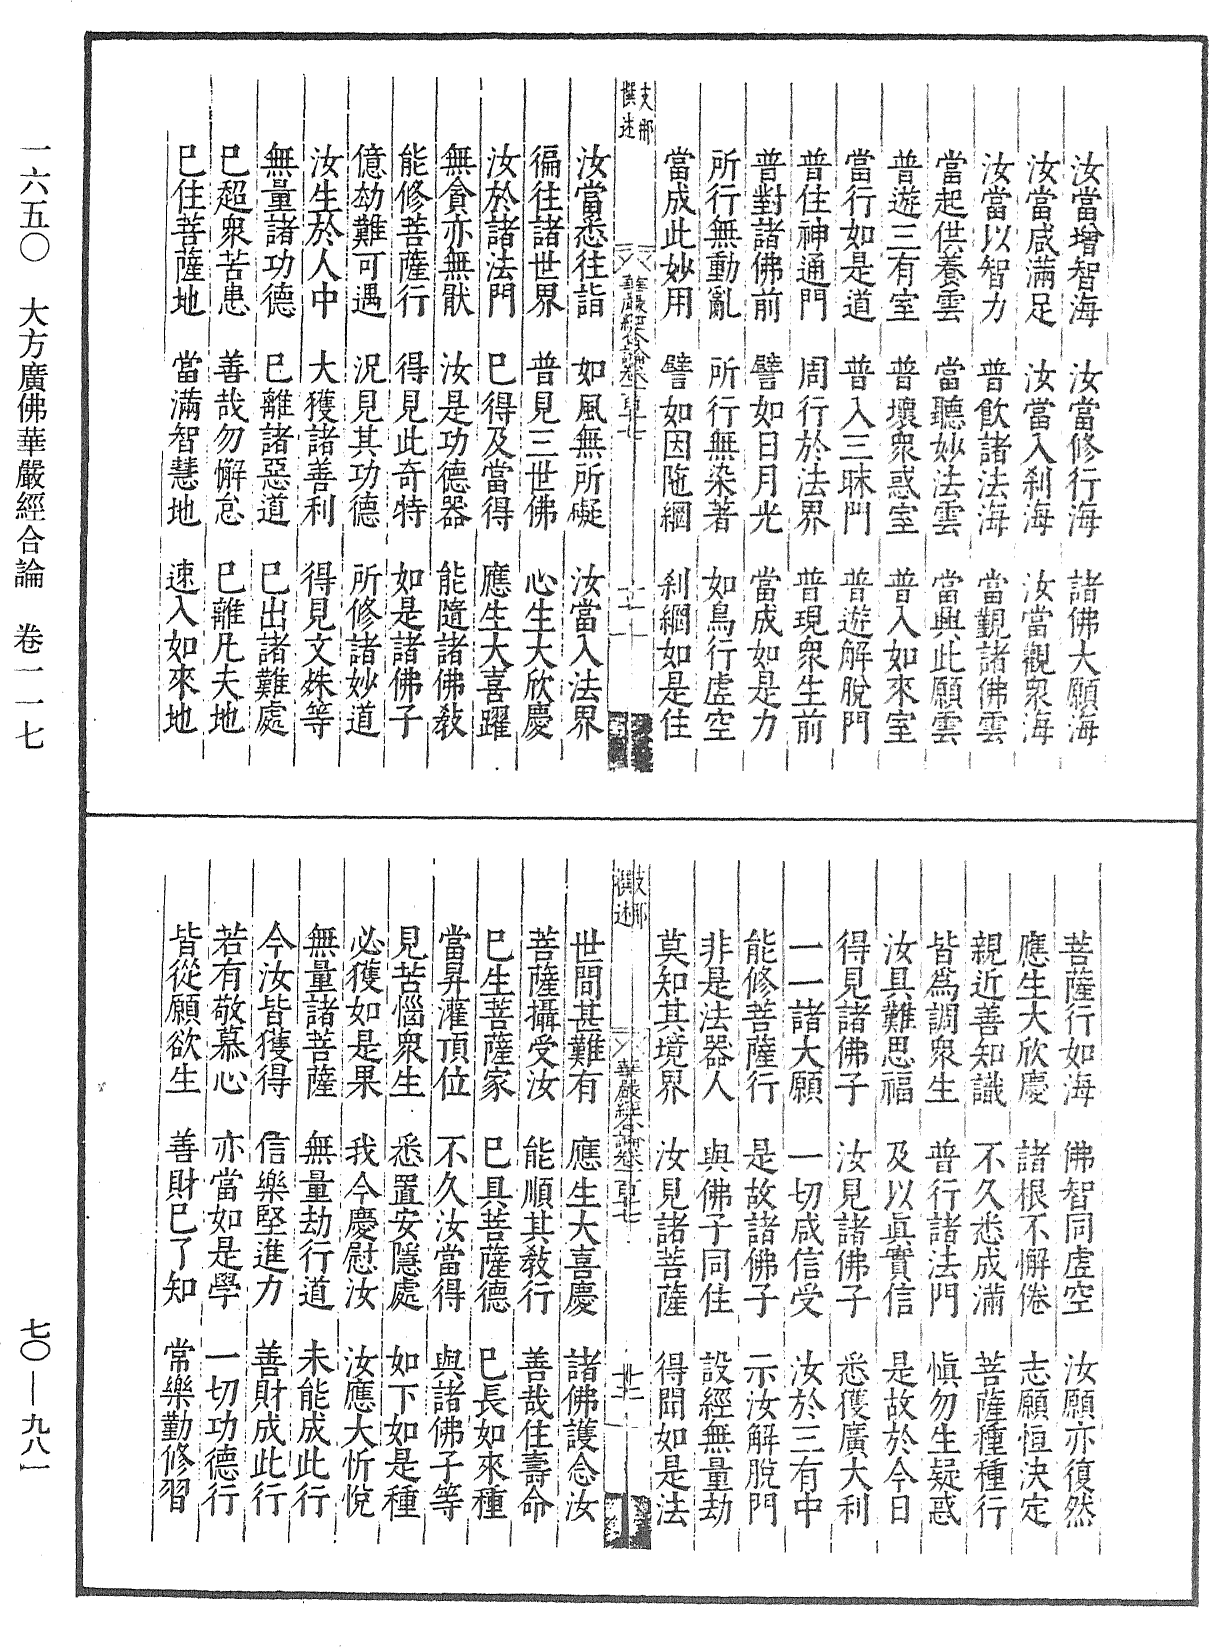 一六五〇　大方廣佛華嚴經合論　卷一一七
汝當增智海　汝當修行海　諸佛大願海
汝當咸滿足　汝當入刹海　汝當觀衆海
汝當以智力　普飲諸法海　當觀諸佛雲
當起供養雲　當聽妙法雲　當興此願雲
普遊三有室　普壞衆惑室　普入如來室
當行如是道　普入三昧門　普遊解脫門
普住神通門　周行於法界　普現衆生前
普對諸佛前　譬如日月光　當成如是力
所行無動亂　所行無染著　如鳥行虛空
當成此妙用　譬如因陁網　刹網如是住
支那撰述　華嚴經合論卷一百十七
汝當悉往詣　如風無所礙　汝當入法界
徧往諸世界　普見三世佛　心生大欣慶
汝於諸法門　已得及當得　應生大喜躍
無貪亦無猒　汝是功德器　能隨諸佛敎
能修菩薩行　得見此奇特　如是諸佛子
億劫難可遇　況見其功德　所修諸妙道
汝生於人中　大獲諸善利　得見文殊等
無量諸功德　已離諸惡道　已出諸難處
已超衆苦患　善哉勿懈怠　已離凡夫地
已住菩薩地　當滿智慧地　速入如來地
菩薩行如海　佛智同虛空　汝願亦復然
應生大欣慶　諸根不懈倦　志願恒決定
親近善知識　不久悉成滿　菩薩種種行
皆爲調衆生　普行諸法門　愼勿生疑惑
汝具難思福　及以眞實信　是故於今日
得見諸佛子　汝見諸佛子　悉獲廣大利
一一諸大願　一切咸信受　汝於三有中
能修菩薩行　是故諸佛子　示汝解脫門
非是法器人　與佛子同住　設經無量劫
莫知其境界　汝見諸菩薩　得聞如是法
支那撰述　華嚴經合論卷一百十七
世間甚難有　應生大喜慶　諸佛護念汝
菩薩攝受汝　能順其敎行　善哉住壽命
已生菩薩家　已具菩薩德　已長如來種
當昇灌頂位　不久汝當得　與諸佛子等
見苦惱衆生　悉置安隱處　如下如是種
必獲如是果　我今慶慰汝　汝應大忻悅
無量諸菩薩　無量劫行道　未能成此行
今汝皆獲得　信樂堅進力　善財成此行
若有敬慕心　亦當如是學　一切功德行
皆從願欲生　善財已了知　常樂勤修習
七〇—九八一